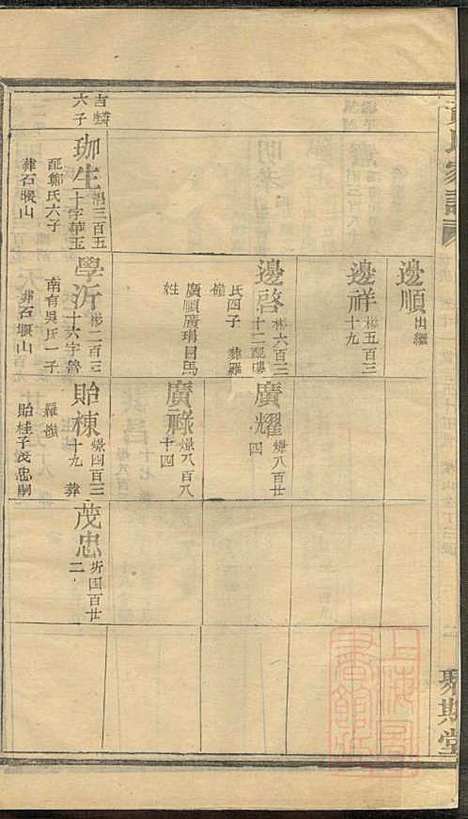 氏家譜
聚期堂
邊順 出繼
邊祥 彬五百三
十九
邊啓 彬六百二
十二配婁
氏四子 葬羅
嶺
廣順廣瑞目馬
姓
廣耀 燝八百廿
四
廣祿 燝八百八
十四
吉麟
六子
珈生 洺三百五
十字華玉
配鄭氏六子
葬石堰山
學沂 彬二百三
十六字魯
南有吳氏一子
葬石堰山
貽棟 燝四百三
十九 葬
羅嶺
貽桂子茂忠嗣
茂忠 圻国百廿
二
上海
書